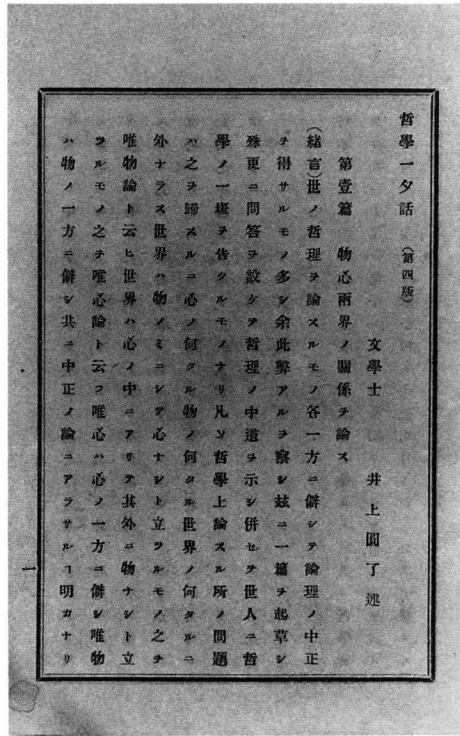 哲學一夕話 (第四版)
文學士 井上圓了述
第壹篇 物心兩界ノ關係ヲ論ス
(緒言)世ノ哲理ヲ論スルモノ各一方ニ僻シテ論理ノ中正
ヲ得サルモノ多シ余此弊アルヲ察シ玆ニ一篇ヲ起草シ
殊更ニ問答ヲ設ケテ哲理ノ中道ヲ示シ併セテ世人ニ哲
學ノ一斑ヲ告クルモノナリ凡ソ哲學上論スル所ノ問題
ハ之ヲ歸スルニ心ノ何タル物ノ何タル世界ノ何タルニ
外ナラス世界ハ物ノミニシテ心ナシト立ツルモノ之ヲ
唯物論ト云ヒ世界ハ心ノ中ニアリテ其外ニ物ナシト立
ツルモノ之ヲ唯心論ト云フ唯心ハ心ノ一方ニ僻シ唯物
ハ物ノ一方ニ僻シ共ニ中正ノ論ニアラサルヿ明カナリ
一